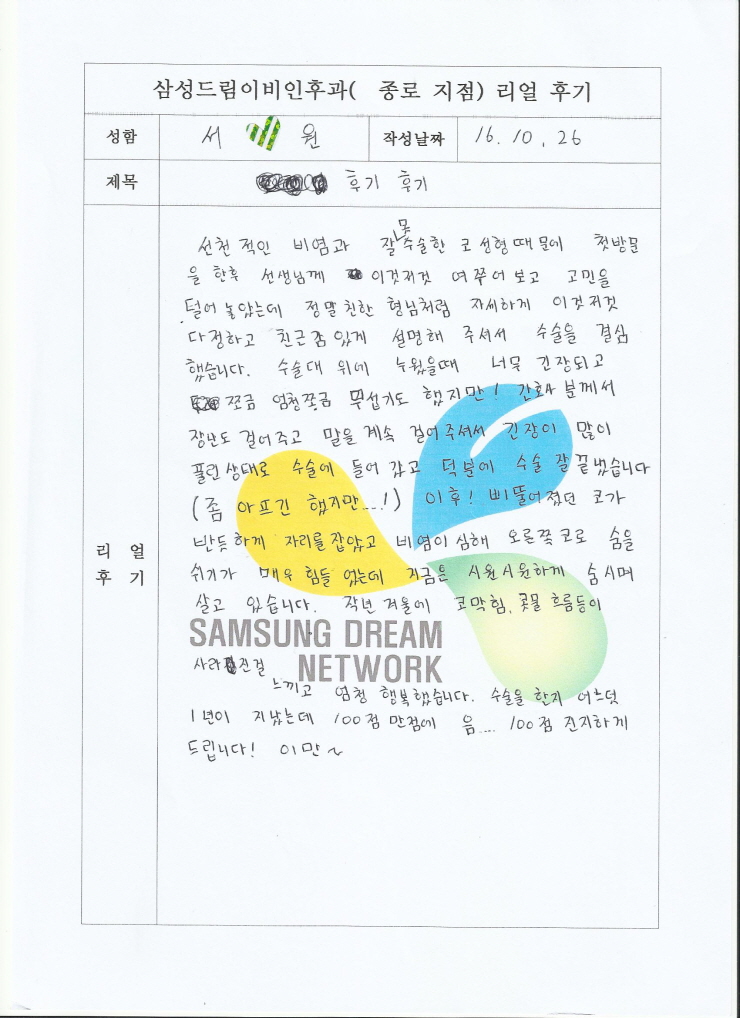 삼성드림이비인후과( 종로 지점) 리얼 후기
성함 서 원 작성날짜 16. 10. 26
제목 후기 후기
선천적인 비염과 잘못 수술한 코 성형때문에 첫방문
을 한후 선생님께 이것저것 여쭈어보고 고민을
털어 놓았는데 정말 친한 형님처럼 자세하게 이것저것
다정하고 친근감 있게 설명해 주셔서 수술을 결심
했습니다. 수술대 위에 누웠을때 너무 긴장되고
쪼금 엄청쪼금 무섭기도 했지만! 간호사 분께서
장난도 걸어주고 말을 계속 걸어주셔서 긴장이 많이
풀린상태로 수술에 들어 갔고 덕분에 수술 잘끝냈습니다
(좀 아프긴 했지만...!) 이후! 삐뚤어졌던 코가
반듯하게 자리를 잡았고 비염이 심해 오른쪽코로 숨을
리 얼
후 기
쉬기가 매우 힘들었는데 지금은 시원시원하게 숨쉬며
살고 있습니다. 작년 겨울에 코막힘, 콧물 흐름등이
SAMSUNG DREAM
NETWORK
사라진걸
느끼고 엄청 행복했습니다. 수술을 한지 어느덧
1년이 지났는데 100점 만점에 음.... 100점 진지하게
드립니다! 이만~